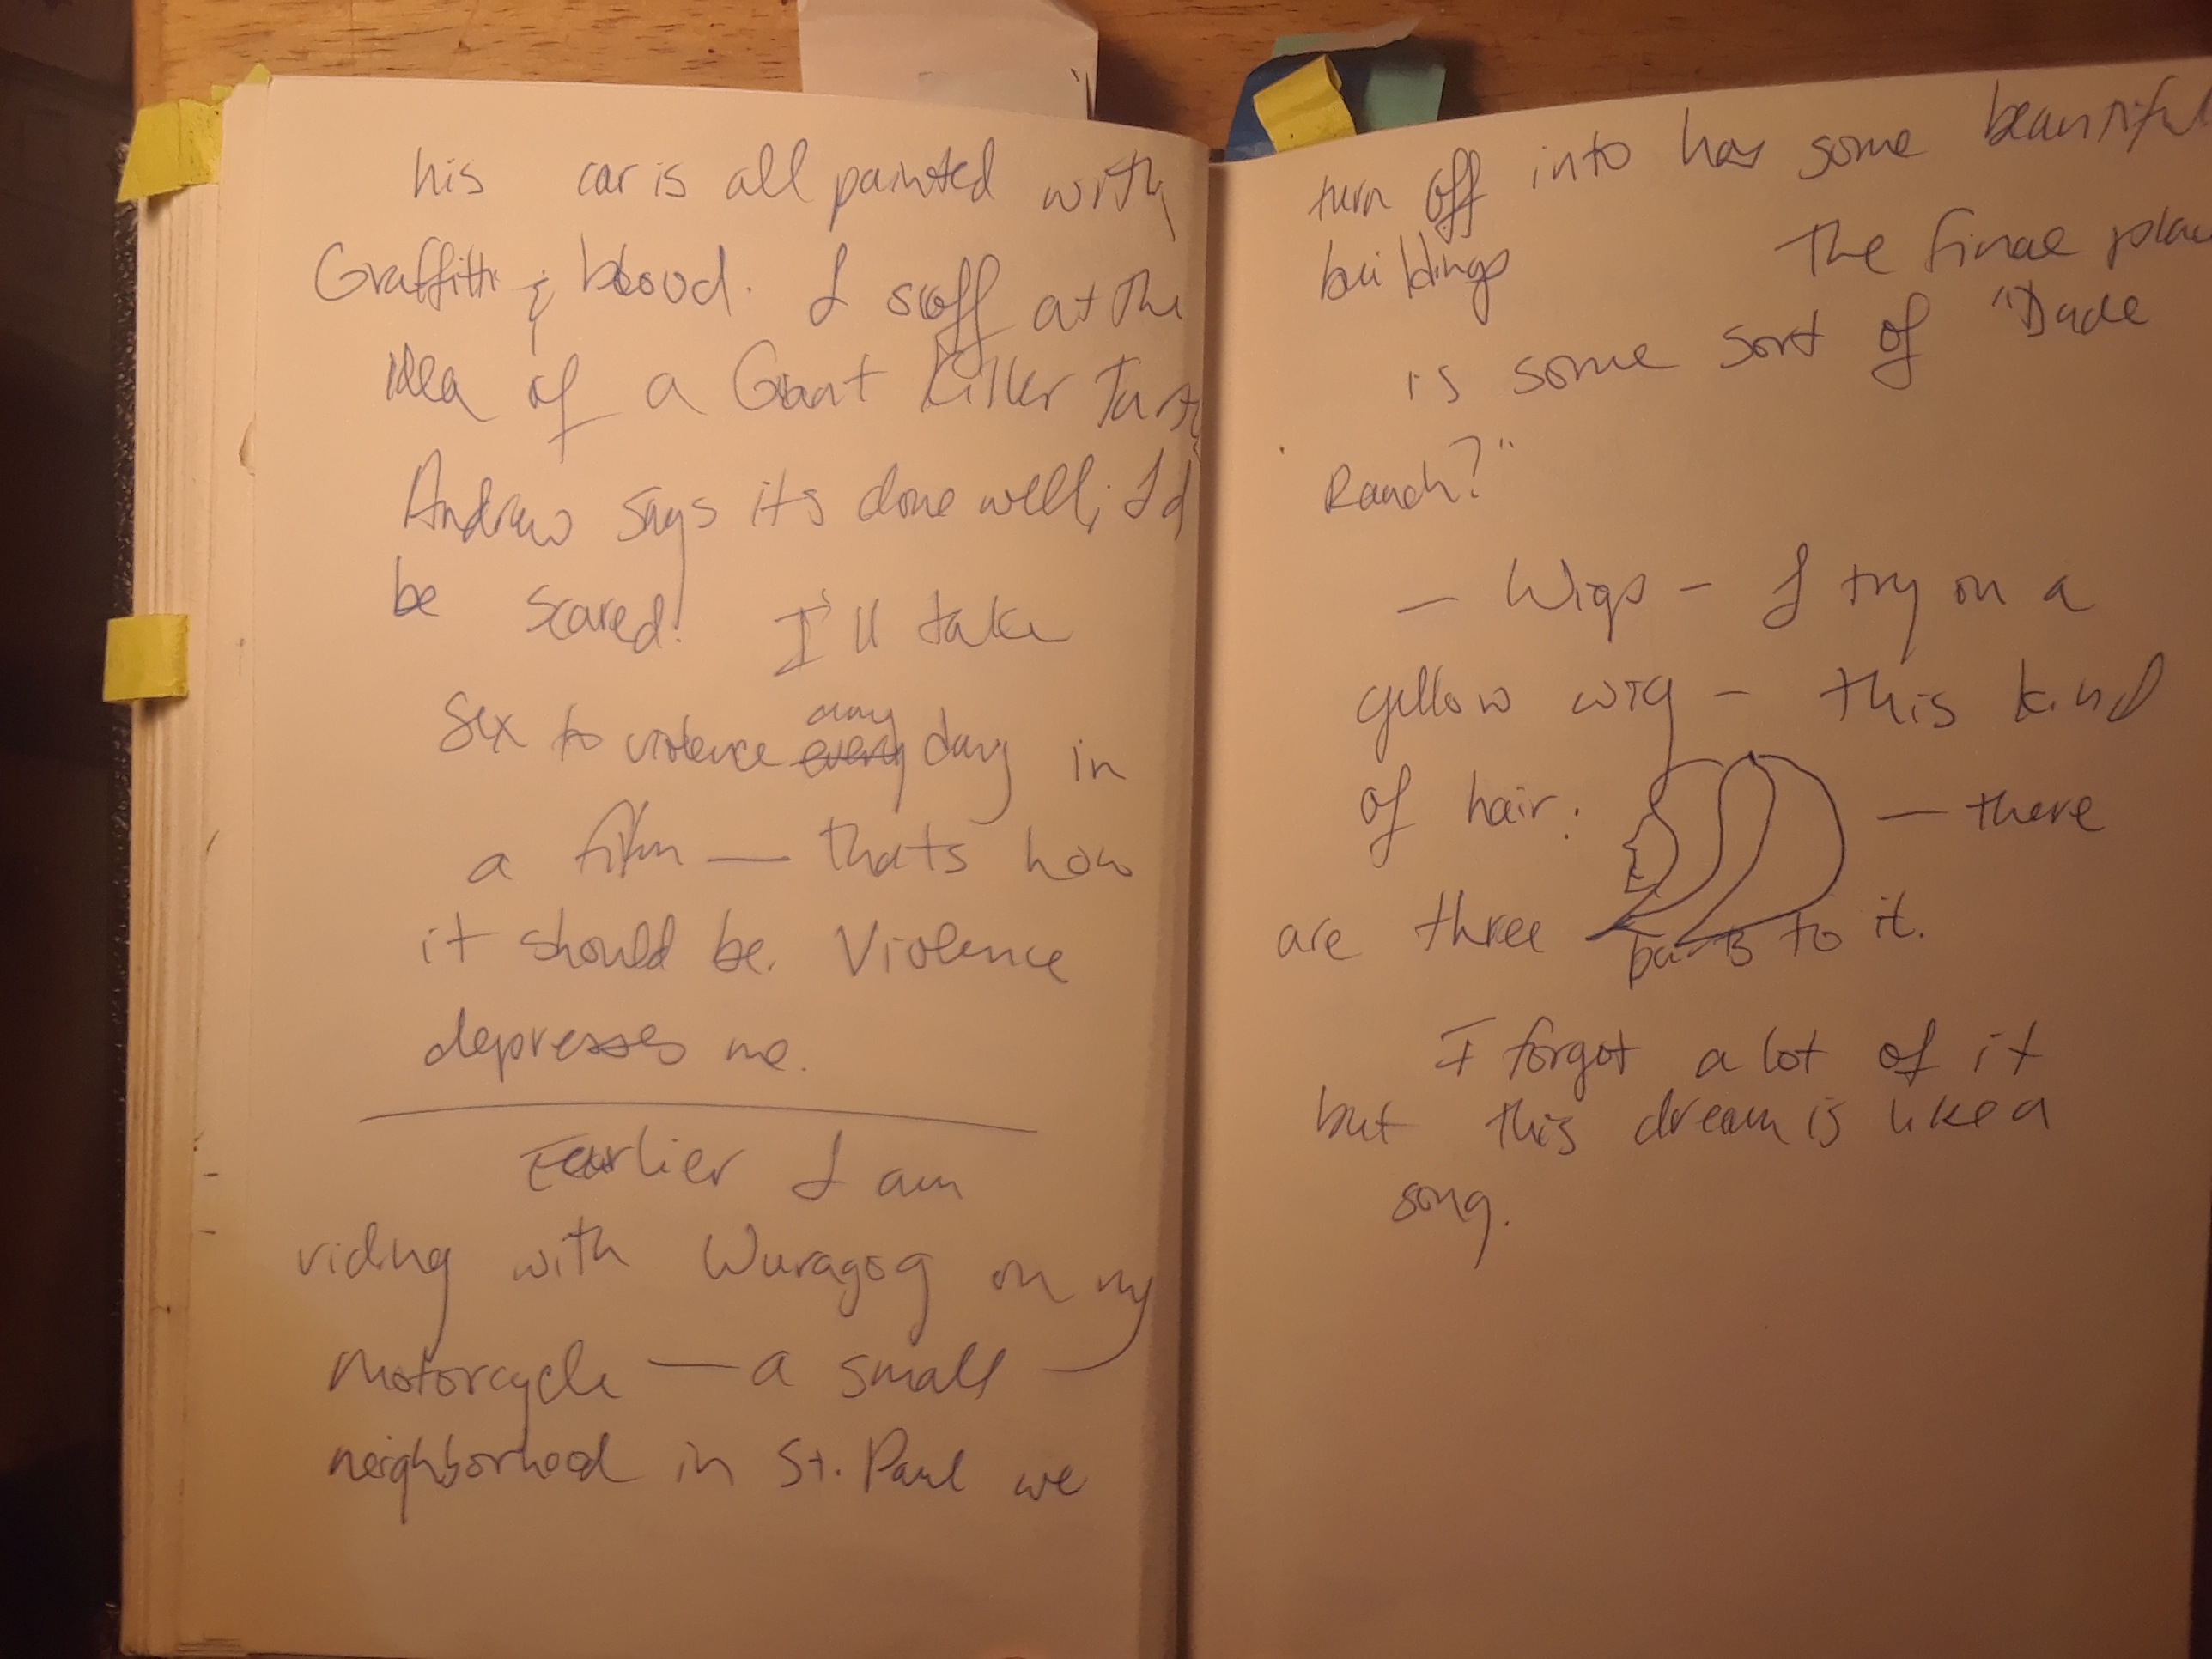 his car is all painted with
Graffitti & blood. I scoff at the
idea of a Giant Killer
Andrew says its done well, I'd
be scared! I'll take
sex to violence any every day in
a film — thats how
it should be. Violence
depresses me.
Earlier I am
riding with Wuragog on my
motorcycle — a small
neighborhood in St. Paul we
turn off into has some beautiful
buildings The final place
is some sort of "Dude
Ranch?"
— Wigs — I try on a
yellow wig — this kind
of hair: — there
are three parts to it.
I forgot a lot of it
but this dream is like a
song.